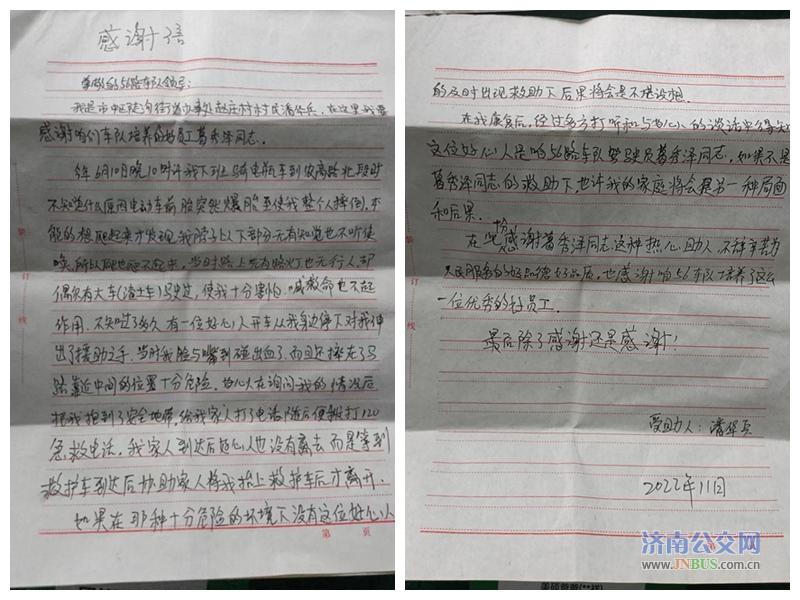 感谢信
尊敬的56路车队领导:
我是市中区陡沟街道办事处赵庄村村民潘华兵,在这里我要
感谢咱们车队培养的好员工葛秀泽同志。
今年6月10日晚10时许我下班骑电瓶车到
不知道什么原因电动车前胎突然爆胎至使我整个人摔倒,本
能的想爬起来才发现我脖子以下部分无有知道也不听使
唤,所以爬也爬不起来,当时路上无有路灯也无行人,却
偶尔有大车(渣土车)驶过,使我十分害怕.喊救命也不起
作用.不知过了多久有一位好心人开车从我身边停下对我伸
出了援助之手,当时我脸与嘴到碰出血了,而且还摔在了马
路靠近中间的位置十分危险,好心人在询问我的情况后
把我抱到了安全地带,给我家人打了电话随后便拨打120
急救电话,我家人到达后好心人也没有离去而是等到
救护车到达后协助家人将我抬上救护车后才离开.
如果在那种十分危险的环境下没有这位好心人
第 页
装订线
的及时出现救助下后果将会是不堪设想.
在我康复后,经过多方打听和与好心人的谈话中得知
这位好心人是咱56路车队驾驶员葛秀泽同志,如果不是
葛秀泽同志的救助下,也许我的家庭将会是另一种局面
和后果.
在此感谢葛秀泽同志这种热心助人,不辞辛苦为
人民服务的好品德好品质,也感谢咱56车队培养了这么
一位优秀的好员工.
最后除了感谢还是感谢!
受助人:潘华兵
2022年11日
装订线
济南公交网
www.JNBUS.com.cn